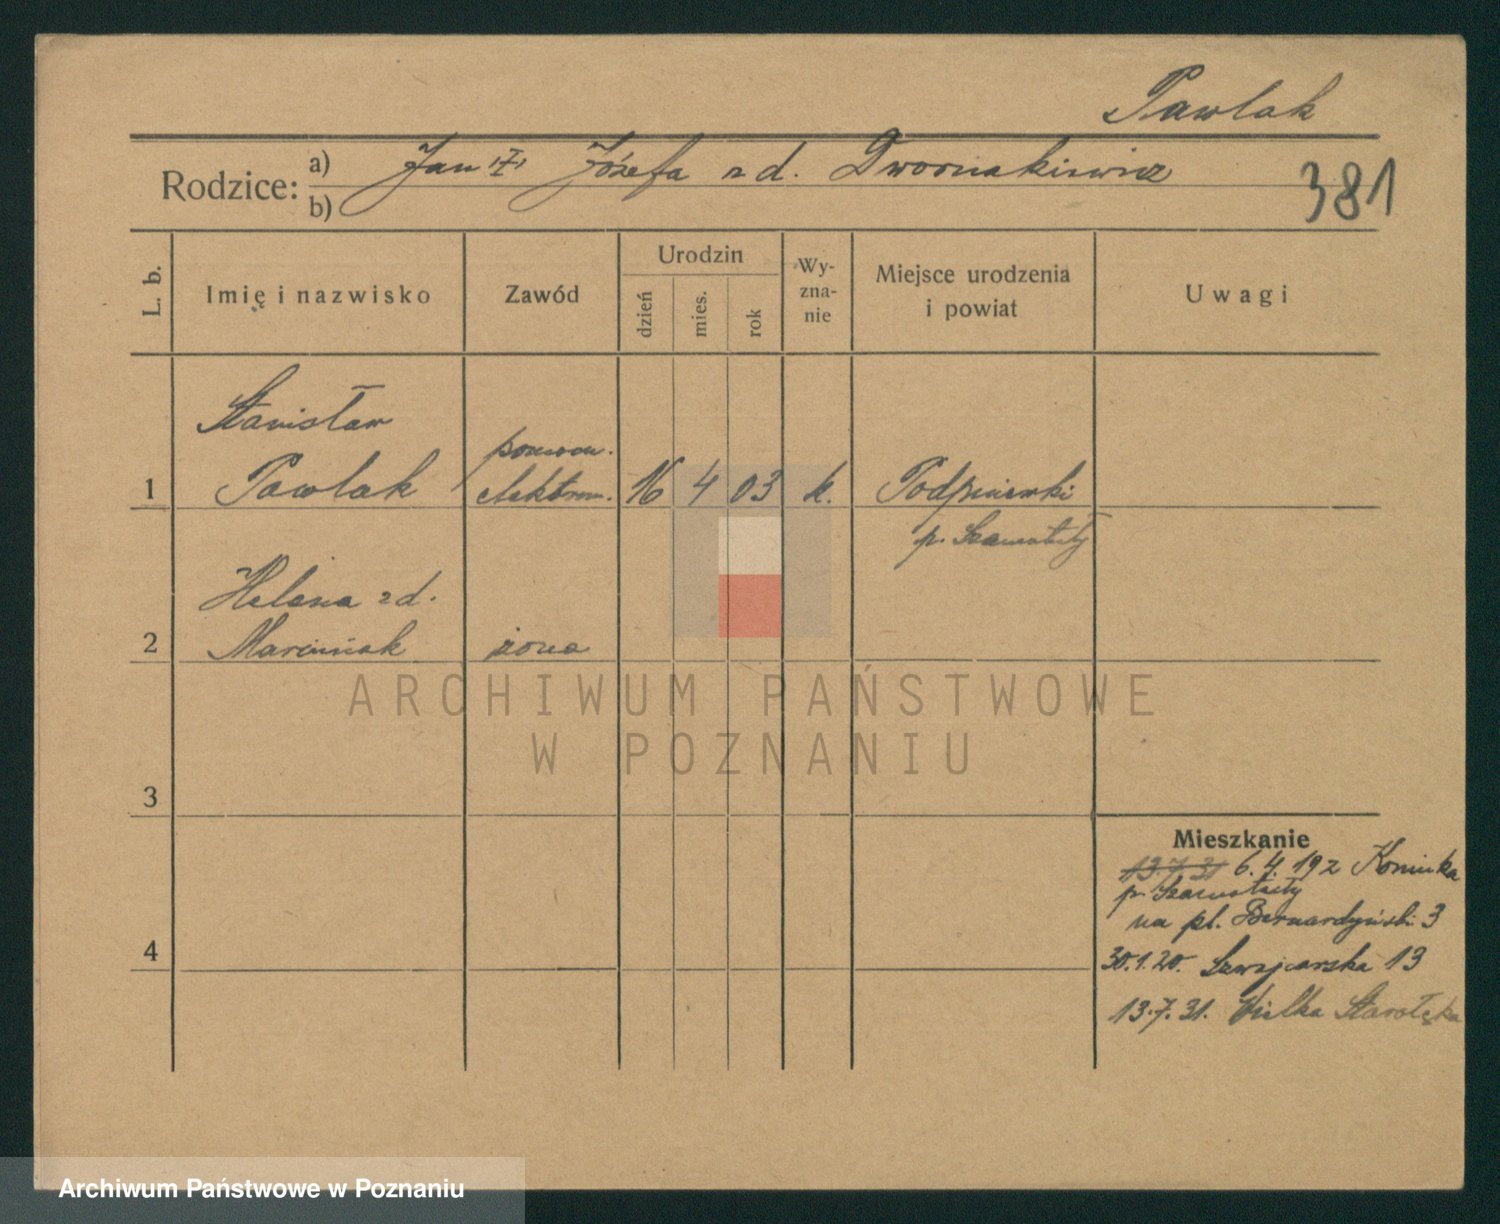 Pawlak
Rodzice:
a) Jan i Józefa zd.
b)
381
L. b.
Imię i nazwisko
Zawód
Urodzin
dzień
mies.
rok
Wy-
zna-
nie
Miejsce urodzenia
i powiat
Uwagi
Stanisław
1 Pawlak
pomocn.
elektrom.
16 4 03 k.
p. Szamotuły
Helena zd.
2 Marciniak żona
3
4
Mieszkanie
13.7.31 6.4.192
p. Szamotuły
na pl. Bernardyński 3
30.1.20. Szwajcarska 13
13.7.31. Wielka Starołęka
ARCHIWUM PAŃSTWOWE
W POZNANIU
Archiwum Państwowe w Poznaniu